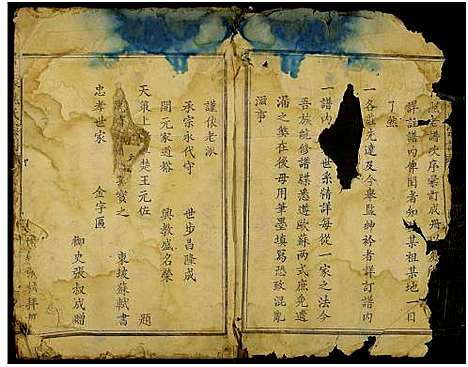 照老譜次序彙訂成冊
詳註譜內俾閱者知某祖某地一目
了然
一各莊先達及今舉監紳衿者詳訂譜內
一譜內世系精詳每從一家之法今
吾族能修譜牒悉遵歐蘇兩式庶免遺
漏之獘在後毋用筆墨填寫恐致混亂
滋事
謹依老派
承宗永代守 世步昌隆成
開元家道裕 興教盛名榮
天策上 楚王元位 題
寶之 東坡蘇軾書
忠孝世家 金字匾
御史張叔成贈